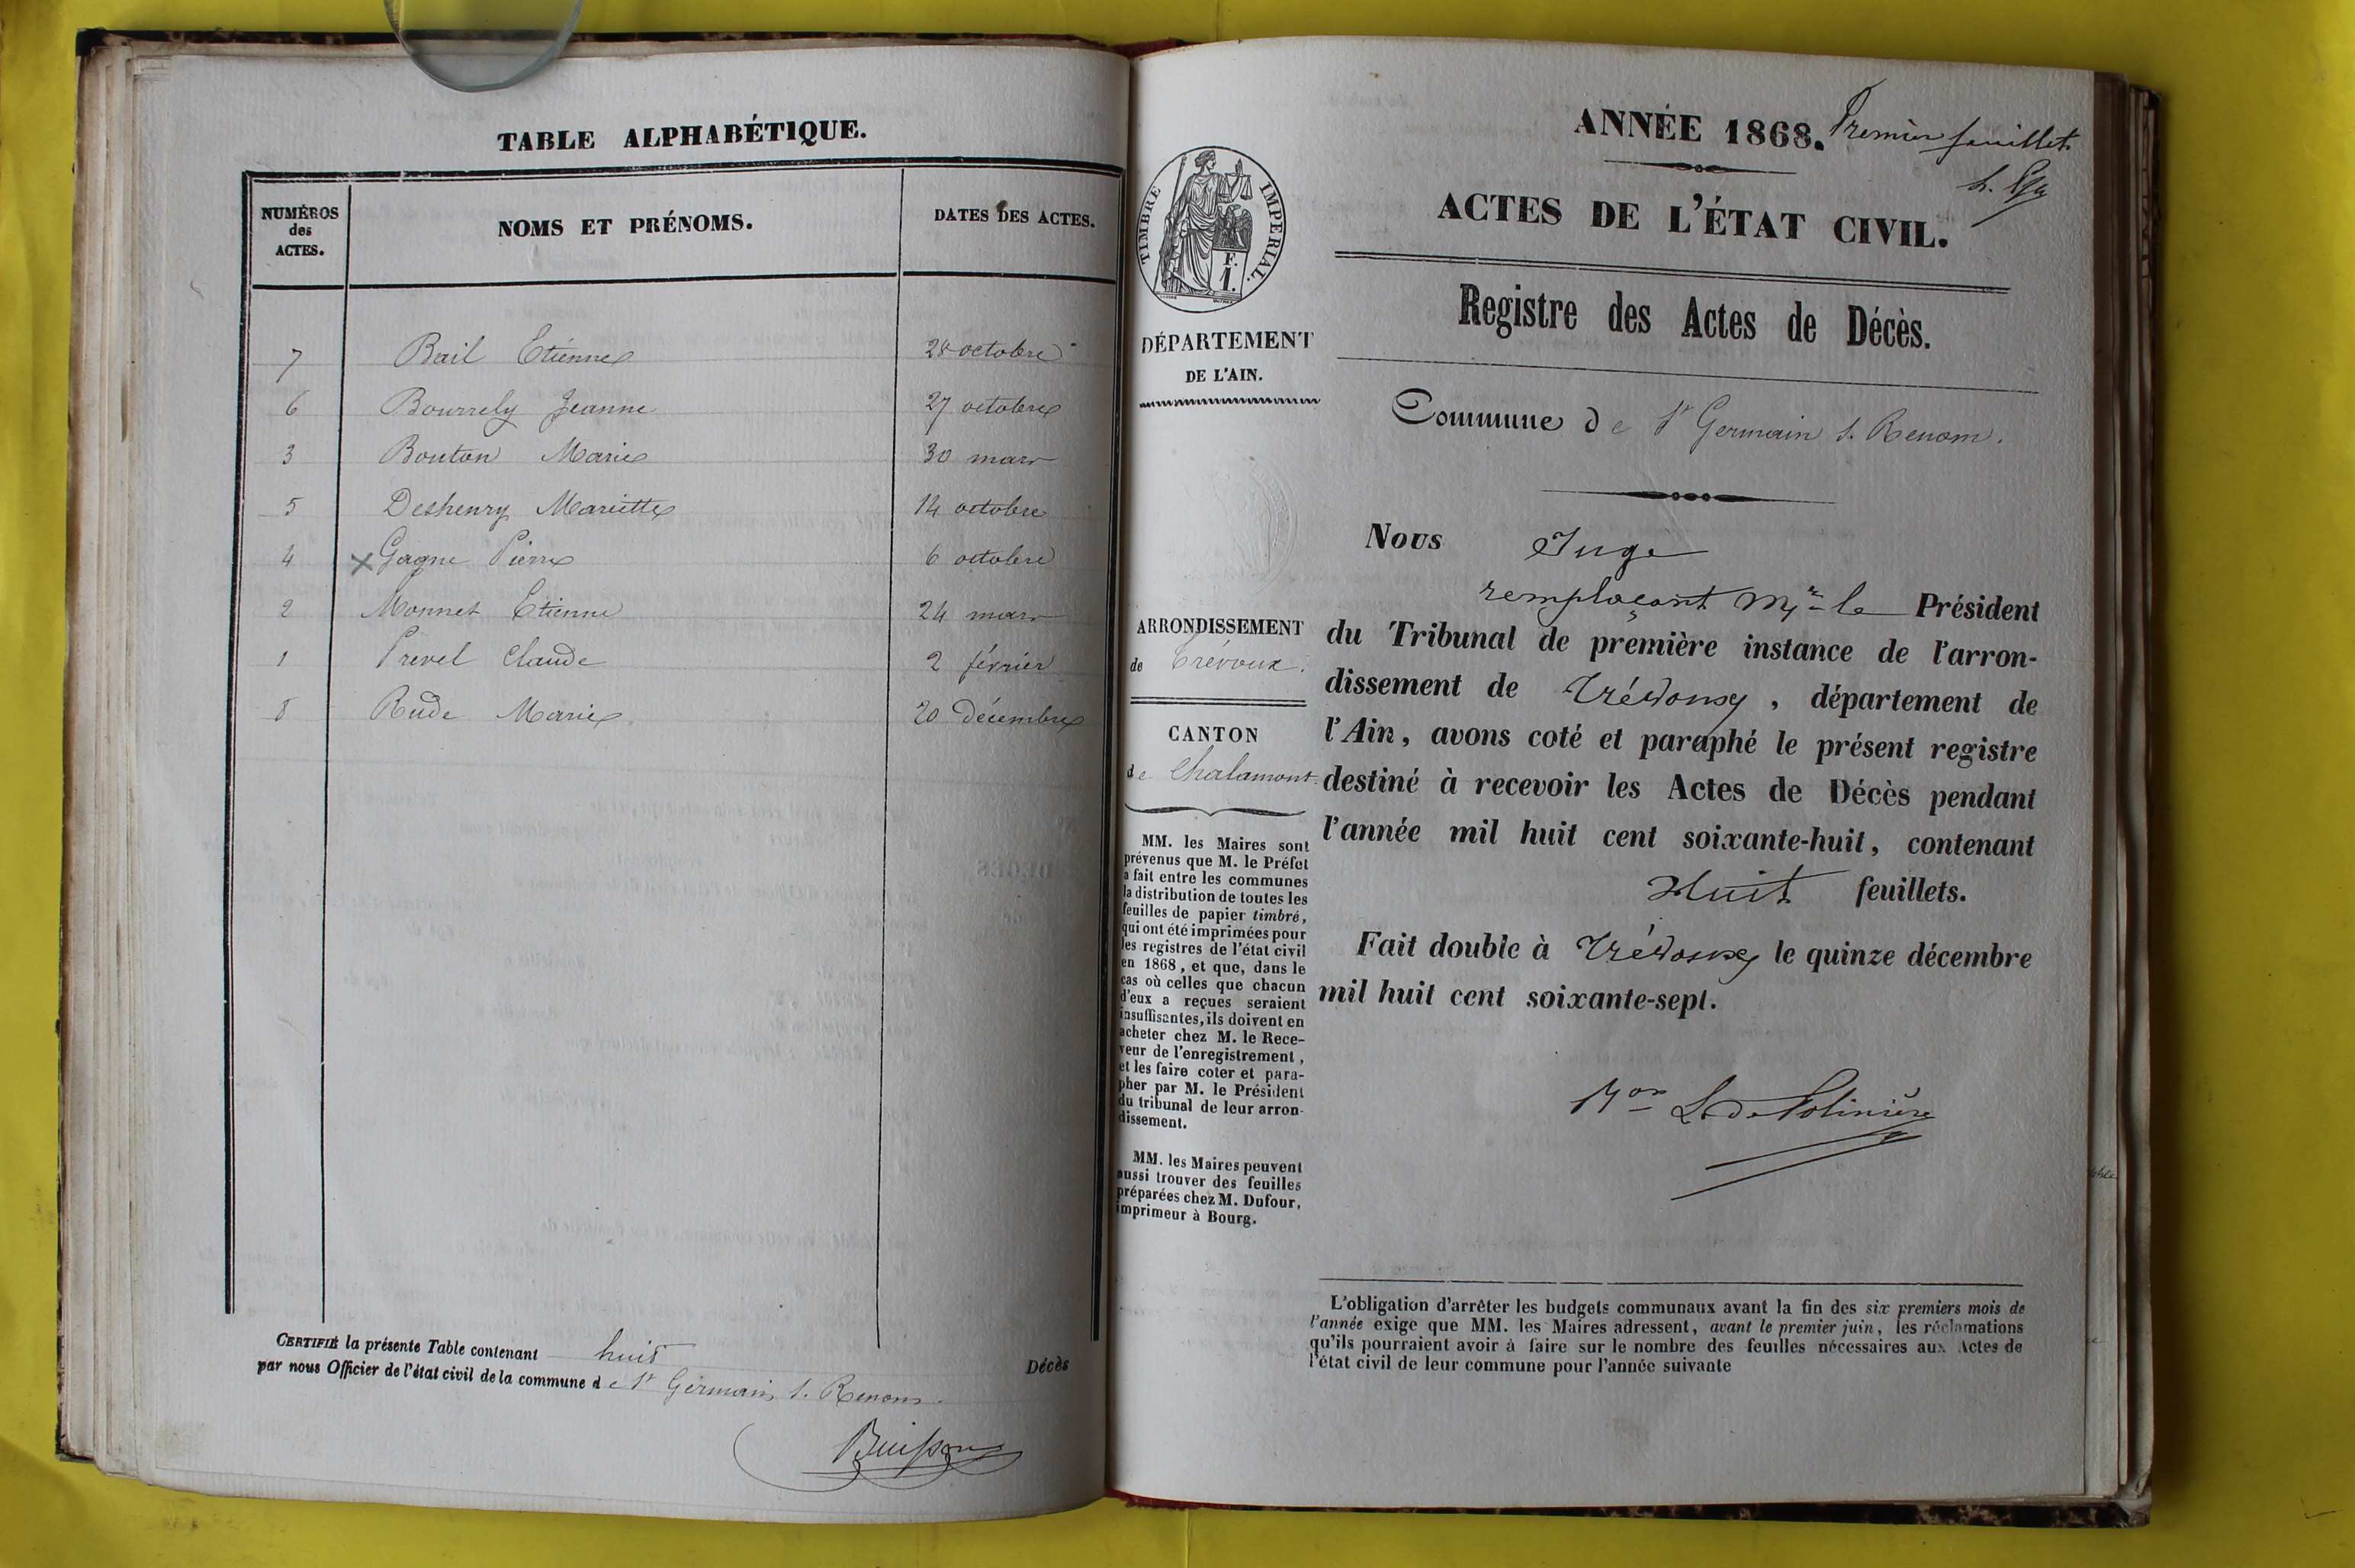 TABLE ALPHABÉTIQUE.
NUMÉROS des ACTES.
NOMS ET PRÉNOMS.
DATES DES ACTES.
7 Bail Etienne 28 octobre
6 Bourrely Jeanne 27 octobre
3 Bouton Marie 30 mars
5 Deshenry Mariette 14 octobre
4 x Gagne Pierre 6 octobre
2 Monnet Etienne 24 mars
1 Prevel Claude 2 février
8 Rude Marie 20 Décembre
CERTIFIÉ la présente Table contenant huit Décès
par nous Officier de l'état civil de la commune de St Germain s. Renom.
Buisson
ANNÉE 1868. Premier feuillet.
ACTES DE L'ÉTAT CIVIL.
Registre des Actes de Décès.
Commune de St Germain s. Renom.
TIMBRE IMPERIAL.
F.
1.
DÉPARTEMENT
DE L'AIN.
ARRONDISSEMENT
de Trévoux.
CANTON
de Chalamont.
MM. les Maires sont
prévenus que M. le Préfet
a fait entre les communes
la distribution de toutes les
feuilles de papier timbré,
qui ont été imprimées pour
les registres de l'état civil
en 1868, et que, dans le
cas où celles que chacun
d'eux a reçues seraient
insuffisantes, ils doivent en
acheter chez M. le Rece-
veur de l'enregistrement,
et les faire coter et para-
pher par M. le Président
du tribunal de leur arron-
dissement.
MM. les Maires peuvent
aussi trouver des feuilles
préparées chez M. Dufour,
imprimeur à Bourg.
Nous Juge
remplaçant Mr le Président
du Tribunal de première instance de l'arron-
dissement de Trévoux, département de
l'Ain, avons coté et paraphé le présent registre
destiné à recevoir les Actes de Décès pendant
l'année mil huit cent soixante-huit, contenant
Huit feuillets.
Fait double à Trévoux, le quinze décembre
mil huit cent soixante-sept.
Bon L. de Polinière
L'obligation d'arrêter les budgets communaux avant la fin des six premiers mois de
l'année exige que MM. les Maires adressent, avant le premier juin, les réclamations
qu'ils pourraient avoir à faire sur le nombre des feuilles nécessaires aux Actes de
l'état civil de leur commune pour l'année suivante